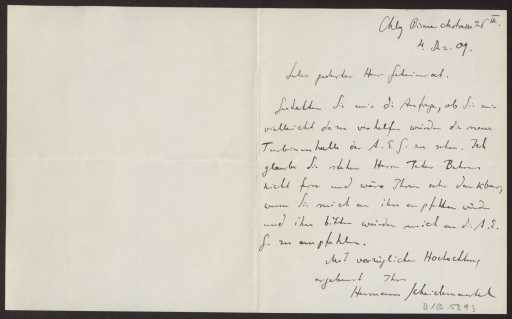 Chbg Bismarckstrasse 25 III.
4. Dez. 09.
Sehr geehrter Herr Geheimrat.
Gestatten Sie mir die Anfrage, ob Sie mir
vielleicht dazu verhelfen würden die neue
Turbinenhalle der A.E.G. zu sehen. Ich
glaube Sie stehen Herrn Peter Behrens
nicht fern und wäre Ihnen sehr dankbar,
wenn Sie mich an ihn empfehlen würden
und ihn bitten würden mich an die A.E.
G. zu empfehlen.
Mit vorzüglicher Hochachtung
ergebenst Ihr
Hermann